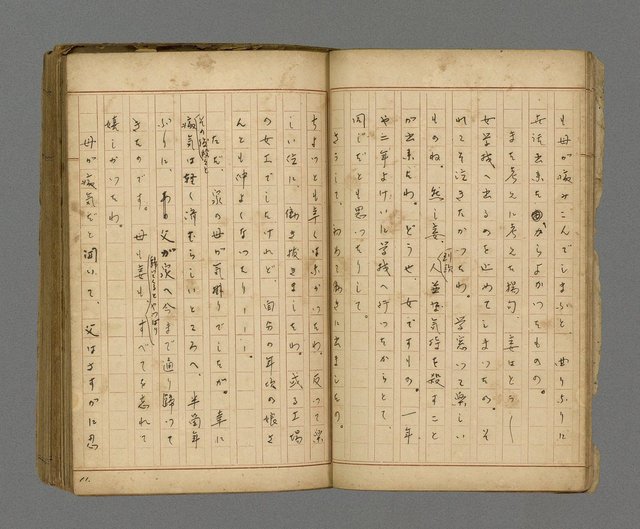 も母が病みこんでしまふと、曲りなりに
生活出来たからよかつたものの。
また考えに考えた揚句、妾はとう〳〵
女学校へ出るのを止めてしまつたの。そ
れでも泣きたかつたわ。学窓つて楽しい
ものね。然し妾、到頭人並な気持を殺すこと
が出来たわ。どうせ、女ですもの。一年
や二年よけいに学校へ行つたからとて、
同じだとも思つたりして。
さうして、わたし働きに出ましたの。
ちよつとも辛くはなかつたわ、反つて楽
しい位に働き抜きましたわ。或る工場
の女工でしたけれど、自分の年頃の娘さ
んとも仲よくなつたり———
ただ、家の母が気掛りでしたが。幸に
その後段々と
病気は軽く済むらしいところへ、半箇年
ぶりに、あの父が家へ今まで通り帰つて
きたのです。母も妾も、すべてを忘れて
嬉しかつたわ。
母が病気だと聞いて、父はさすがに思
11.